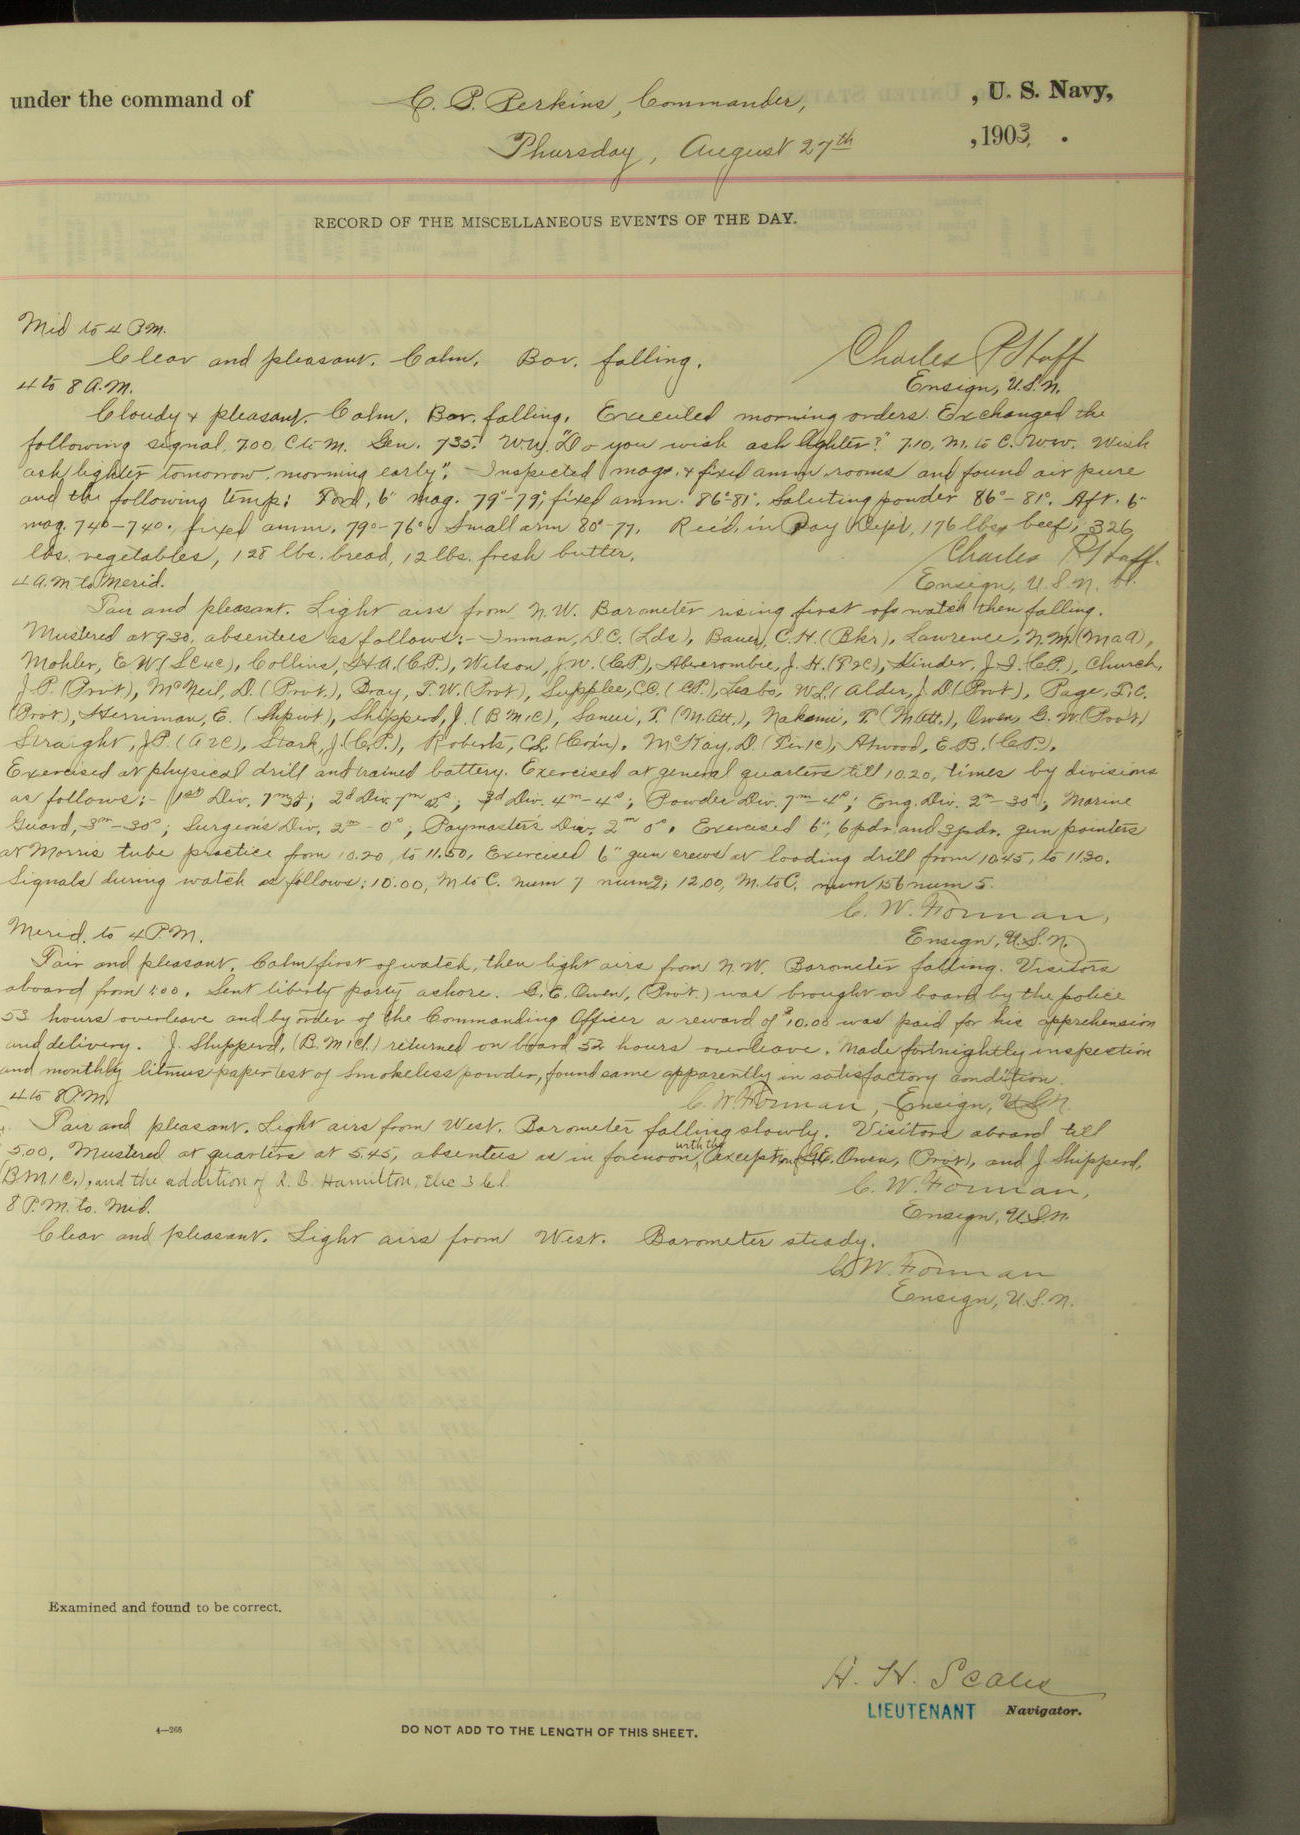 under the command of C. P. Perkins, Commander, , U. S. Navy,
Thursday, August 27th ,1903.
RECORD OF THE MISCELLANEOUS EVENTS OF THE DAY.
Mid to 4 A.M.
Clear and pleasant. Calm. Bar. falling. Charles P Huff
4 to 8 A.M. Ensign, U.S.N.
Cloudy & pleasant. Calm. Bar. falling. Executed morning orders. Exchanged the
following signal, 7.00, C to M. Gen. 735. W.W. "Do you wish ash lighter?" 7.10, M. to C. W.W. Wish
ash lighter tomorrow morning early". Inspected mags. & fixed amm. rooms and found air pure
and the following temp: Ford, 6" mag. 79°-79°, fixed amm. 86°-81°. Saluting powder 86°-81°. Aft. 6"
mag. 74°-74°. fixed amm. 79°-76°. Small arm 80°-77. Rec'd. in Pay Dept, 176 lbs. beef, 326
lbs. vegetables, 128 lbs. bread, 12 lbs. fresh butter. Charles P Huff.
4 A.M. to Merid. Ensign, U.S.N.
Fair and pleasant. Light airs from N.W. Barometer rising first of watch then falling.
Mustered at 9.30, absentees as follows:- Inman, D C. (Lds), Bauer, C.H. (Bkr), Lawrence, N.M. (MaA),
Mohler, E W. (SC4C), Collins, H.A. (C.P.), Wilson, J.W. (CP), Abercrombie, J. H. (P2C), Kinder, J.I. (C.P.), Church,
J. P. (Prvt), McNeil, D. (Prvt.), Bray, T. W. (Prvt), Supplee, C.C. (CP.), Leabo, W.L. ( Alder, J. D (Prvt), Page, T.C.
(Prvt), Herriman, E. (Shpwt), Shipperd, J. (B M 1C), Sanui, T. (M.Att.), Nakami, T. (M Att.), Owen, G. W. (Prvt)
Straight, J.P. (A 2C), Stark, J. (C.P.), Roberts, C.L. (Coxn). McKay, D. (Fir 1C), Atwood, E.B. (C.P.).
Exercised at physical drill and trained battery. Exercised at general quarters till 10.20, times by divisions
as follows:- 1st Div. 7m 3s; 2d Div. 7m s; 3d Div. 4m-4s; Powder Div. 7m-4s; Eng. Div. 2m-30s; Marine
Guard, 3m-30s; Surgeon's Div. 2m-0s, Paymaster's Div. 2m 0s. Exercised 6", 6 pdr. and 3 pdr. gun pointers
at Morris tube practice from 10.20, to 11.50. Exercised 6" gun crews at loading drill from 10.45, to 11.30.
Signals during watch as follows: 10.00, M to C. num 7 num 2; 12.00, M. to C. num 156 num 5.
C. W. Forman,
Merid. to 4 P.M. Ensign, U.S.N.
Fair and pleasant. Calm first of watch, then light airs from N.W. Barometer falling. Visitors
aboard from 1:00. Sent liberty party ashore. G. E. Owen, (Prvt.) was brought on board by the police
53 hours overleave and by order of the Commanding Officer a reward of $10.00 was paid for his apprehension
and delivery. J. Shipperd, (B.M 1Cl.) returned on board 52 hours overleave. Made fortnightly inspection
and monthly litmus paper test of smokeless powder, found same apparently in satisfactory condition.
4 to 8 P.M. C. W. Forman, Ensign, U.S.N.
Fair and pleasant. Light airs from West. Barometer falling slowly. Visitors aboard till
5.00. Mustered at quarters at 5.45, absentees as in forenoon, with the exception of G.E. Owen, (Prvt), and J. Shipperd,
(B M 1 C.), and the addition of R. B. Hamilton, Elec 3 Cl. C. W. Forman,
8 P.M. to Mid. Ensign, U.S.N.
Clear and pleasant. Light airs from West. Barometer steady.
C W. Forman
Ensign, U.S.N.
Examined and found to be correct.
H. H. Scales
LIEUTENANT Navigator.
4—266
DO NOT ADD TO THE LENGTH OF THIS SHEET.